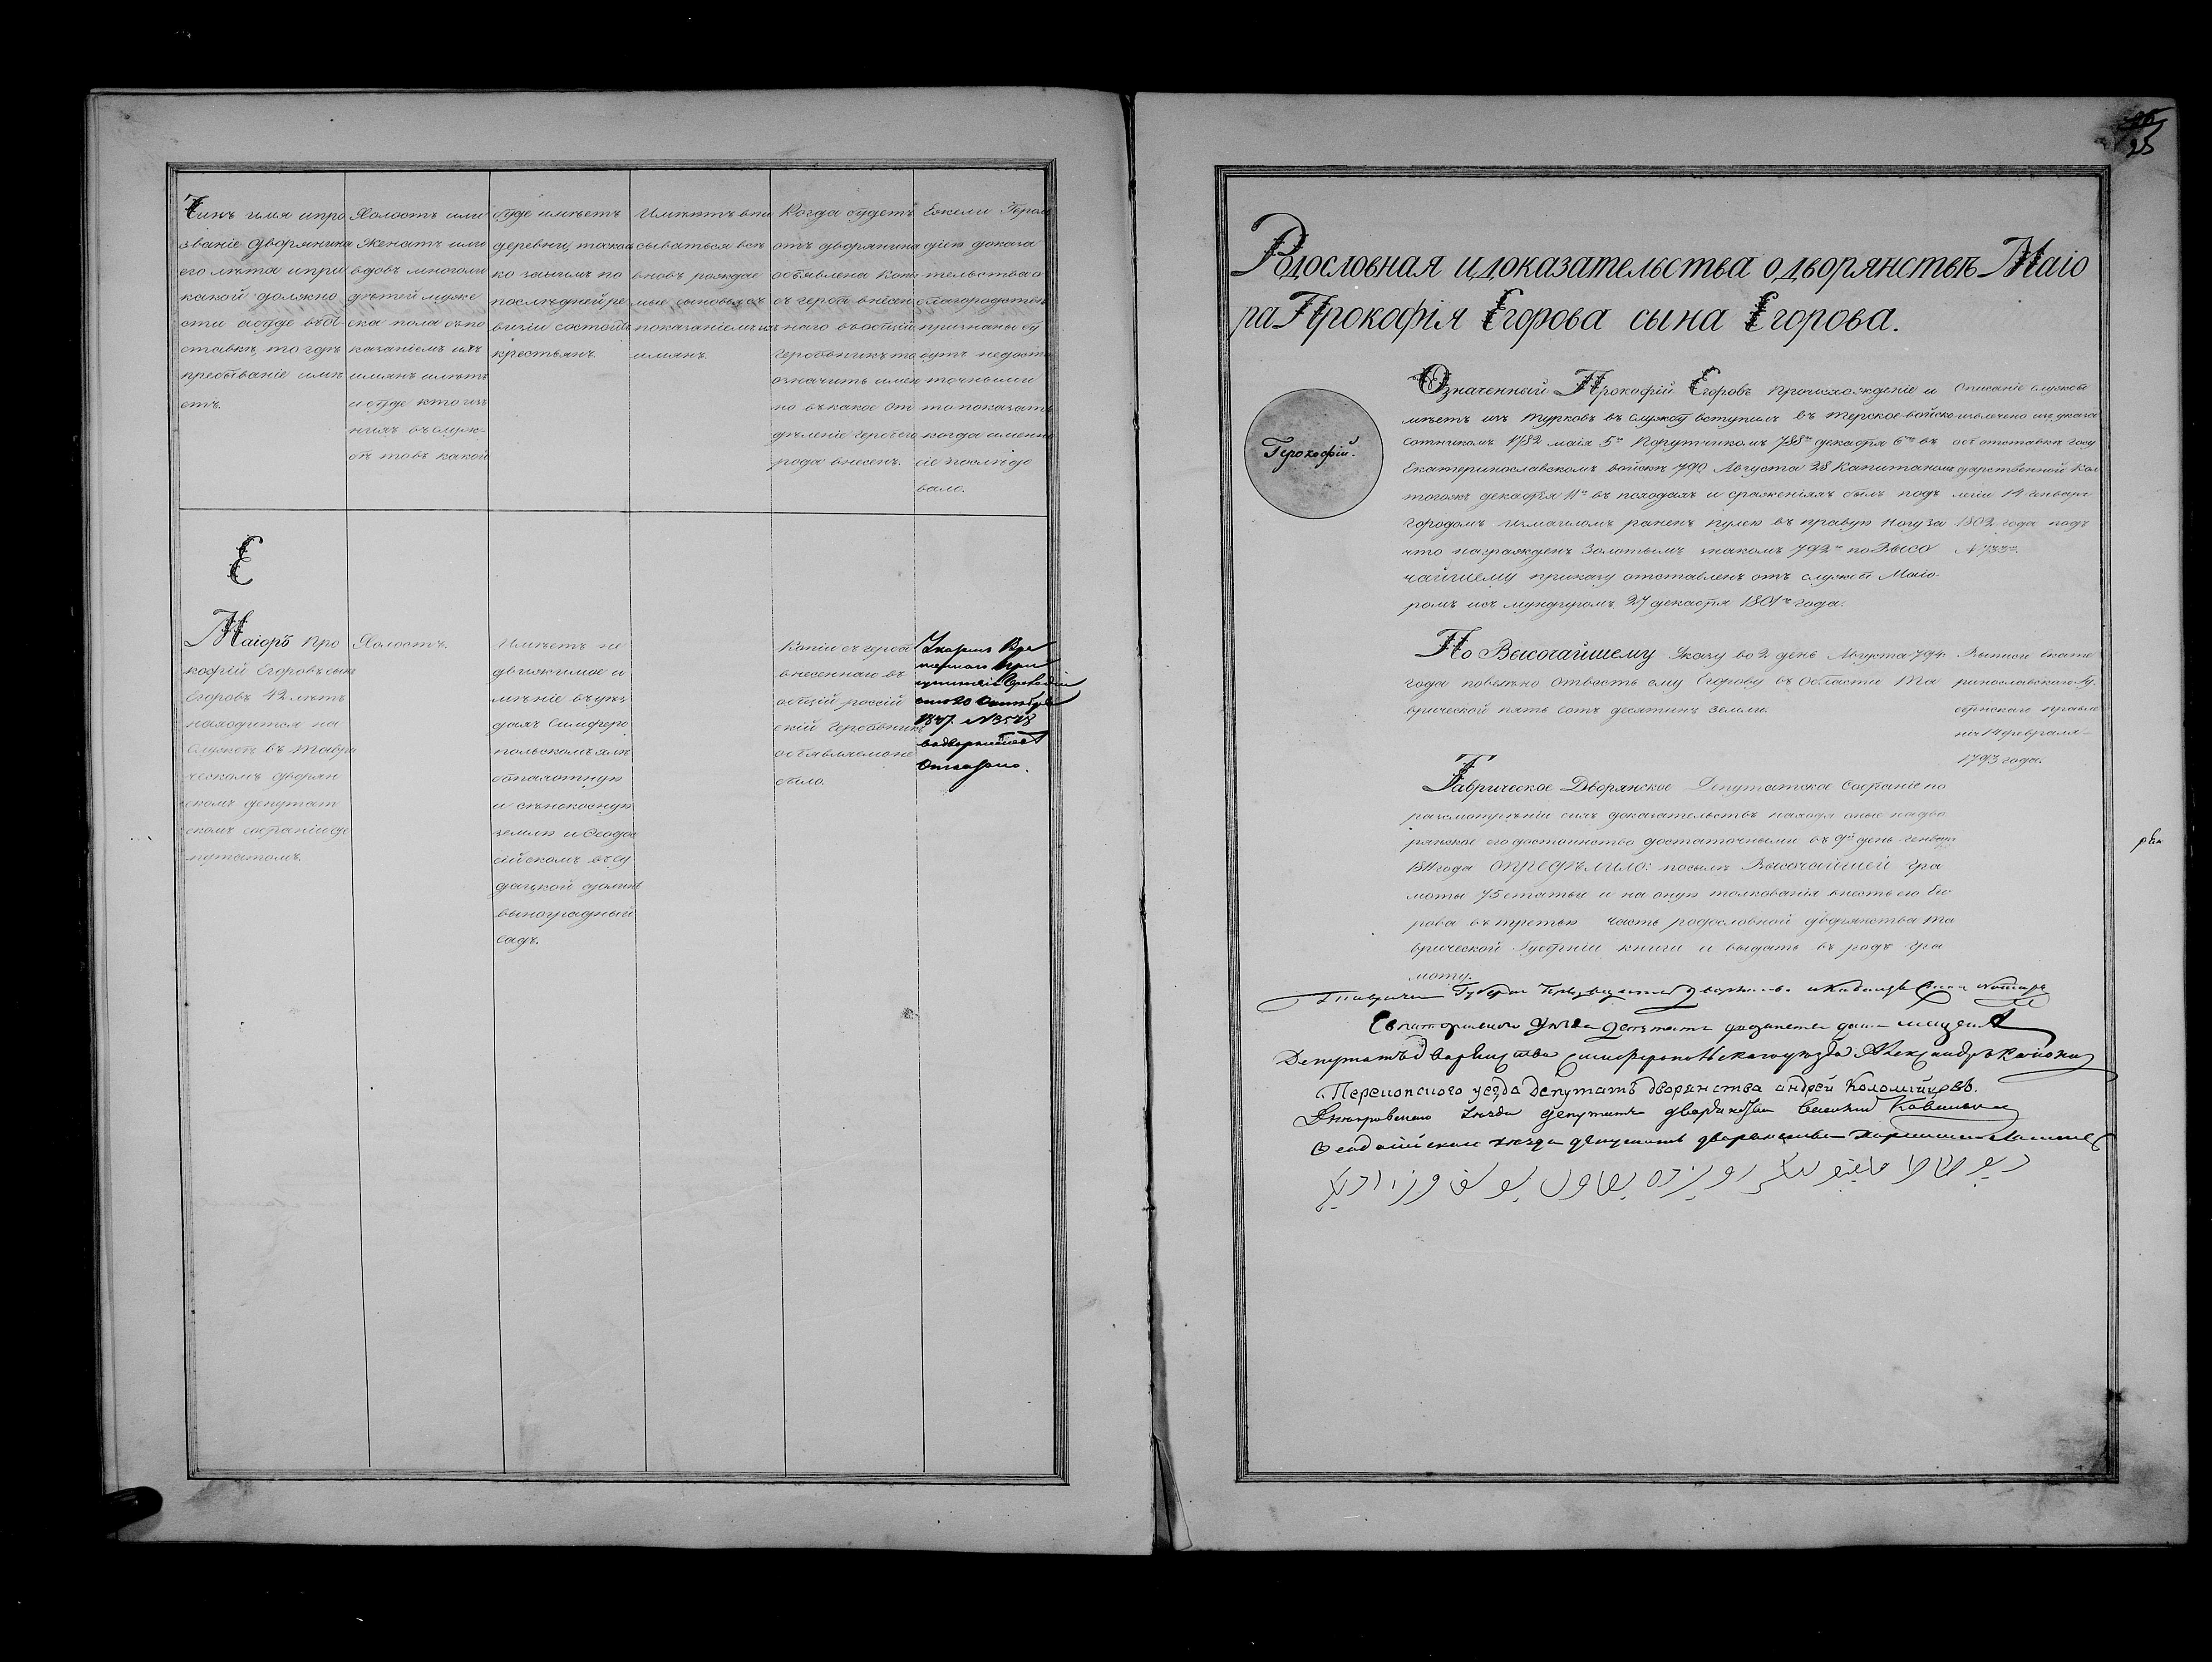 Чинъ имя ипро
званіе дворянина
его лѣта ипри
какой должно
сти абуде въот
ставкѣ то гдѣ
пребываніе имѣ
етъ.
Холостъ или
Женатъ или
вдовъ многоли
дѣтей муже
ска пола съпо
казаніемъ ихъ
имянъ имѣетъ
ибуде ктоизъ
нихъ въслуж-
бѣ товъ какой
буде имѣетъ
деревни, то
ко занимъ по
послѣдней ре
визіи состоитъ
крестьянъ.
Имѣютъ впи
сываться всѣ
вновь рождае
мые сыновья съ
показаніемъ ихъ
имянъ.
Когда будетъ
отъ дворянина
объявлена копі
съ герба внесен
наго въобщій
гербовникъ то
означить имен
но въкакое от
дѣленіе гербъего
рода внесенъ.
Ежели Герол
діею доказа
тельства о
благородствѣ
признаны бу
дутъ недоста
точными
то показать
когда именно
сіе послѣдо
вало.
Е
Маіоръ Про
кофій Егоровъ сынъ
Егоровъ 42 лѣтъ
находится на
службѣ въ Таври
ческомъ дворян
скомъ депутат
скомъ собраніи де
путатомъ.
Холостъ.
Имѣетъ не
движимое и
мѣніе въуѣз
дахъ Симферо
польскомъ
и сѣнокосную
землю и Ѳеодос
сійскомъ въСу
дацкой долинѣ
виноградный
садъ.
Копіи съ герба
внесеннаго въ
общій россій
скій Гербовникъ
объявляемоне
было.
Указомъ Вре
меннаго При
сутствія Герольдіи
1847. N 3528
вдворянствѣ
Отказано.
25
Родословная идоказательства одворянствѣ Маіо
ра Прокофія Егорова сына Егорова.
Прокофій.
Означенный Прокофій Егоровъ происхожденіе и
мѣетъ изъ турковъ въ службу вступилъ въ терское войско
сотникомъ 1782 маія 5го Порутчикомъ 788го декабря 6го въ
Екатеринославскомъ войскѣ 790 Августа 28 Капитаномъ
тогожъ декабря 11го въ походахъ и сраженіяхъ былъ подъ
городомъ измаиломъ раненъ пулею въ правую ногу за
что награжденъ золотымъ знакомъ 792го по Высо
чайшему приказу отставленъ отъ службы Маіо-
ромъ исъ мундиромъ 27 декабря 1801го года.
Описаніе службы
извлечено изъ указа
объ отставкѣ Госу
дарственной Кол
легіи 14 генваря
1802 года подъ
N 733мъ.
По Высочайшему Указу во 2 день Августа 794
года повелѣно отвесть ему Егорову въ Области Та
врической пять сотъ десятинъ земли.
Выписи Екате
ринославскаго Гу
бернскаго правле
нія 14 февраля
1793 года.
Таврическое Дворянское Депутатское Собраніе по
разсмотрѣніи сихъ доказательствъ находя оные надво
рянское его достоинство достаточными въ 9й день генваря
1811 года опредѣлило: посылѣ Высочайшей гра
моты 75 статьи и на оную толкованія внесть его Его
рова въ третью часть родословной дворянства Та
врической Губерніи книги и выдать въ родъ гра
моту.
Таврическій Губернскій Предводитель Дворянства
Евпаторійскаго уѣзда депутатъ
Депутатъ дворянства Симферопольскаго уѣзда Александръ
Перекопского уезда Депутатъ дворянства андрей Коломійцовъ.
Днепровскаго уѣзда депутатъ дворянства Василий
Ѳеодосійскаго уѣзда депутатъ дворянства